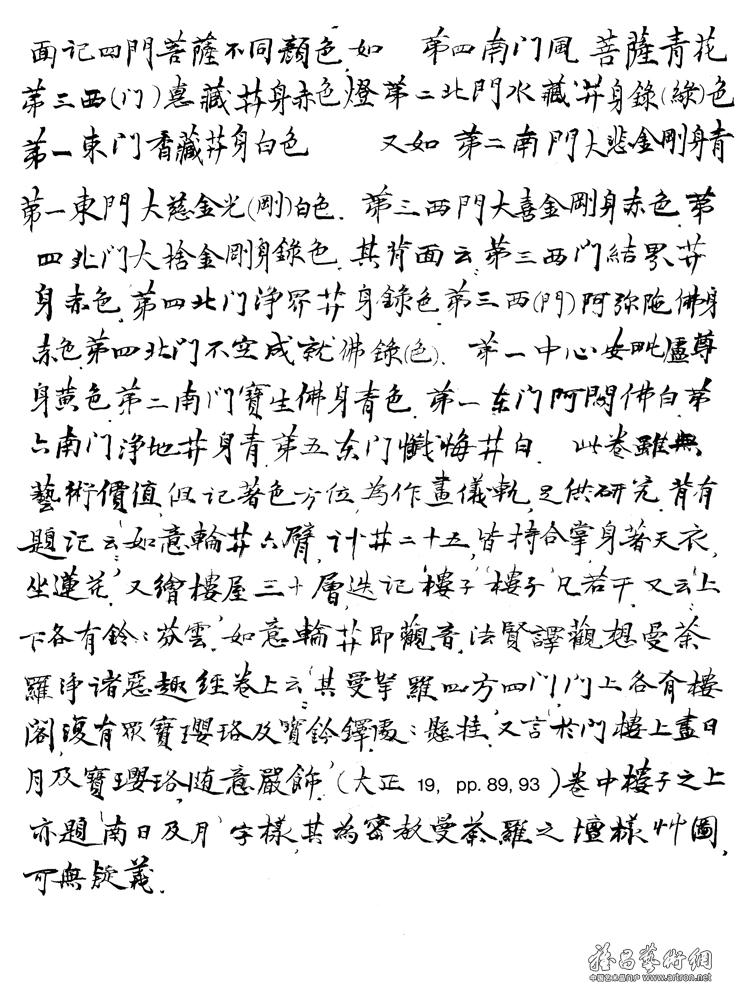 面记四門菩薩不同顏色,如 第四南门風 菩薩青花
第三西(门)惠藏菩身赤色燈第二北門水藏菩身錄(綠)色
第一東門香藏菩身白色 又如 第二南門大悲金剛身青
第一東門大慈金光(剛)白色.第三西門大喜金剛身赤色.第
四北门大捨金剛身錄色.其背面云:第三西门結界菩
身赤色,第四北门淨界菩身錄色第三西(門)阿弥陁佛身
赤色.第四北门不空成就佛錄(色).第一中心 毗盧尊
身黃色.第二南门寶生佛身青色.第一东门阿閦佛白.第
六南门淨地菩身青.第五东门懺悔菩白.此卷雖無
藝術價值,但记著色方位,為作畫儀軌,足供研究.背有
題记云:“如意輪菩六臂,计菩二十五,皆持合掌身著天衣,
坐蓮花”又繪樓屋三十層,迭记“樓子”“樓子”凡若干.又云“上
下各有鈴”.芬雲:如意輪菩即觀音.法賢譯觀想曼荼
羅淨诸惡趣经卷上云:“其曼拏羅四方四门,门上各有樓
阁,復有眾寶瓔珞及寶鈴鐸處處懸挂.”又言於门樓上畫日
月及寶瓔珞,随意嚴飾.(大正 19, pp.89,93)卷中樓子之上
亦題“南日及月”字樣,其為密教曼荼羅之壇樣艸圖,
可無疑義.
雅昌藝術網
中国艺术品门户 www.artron.net